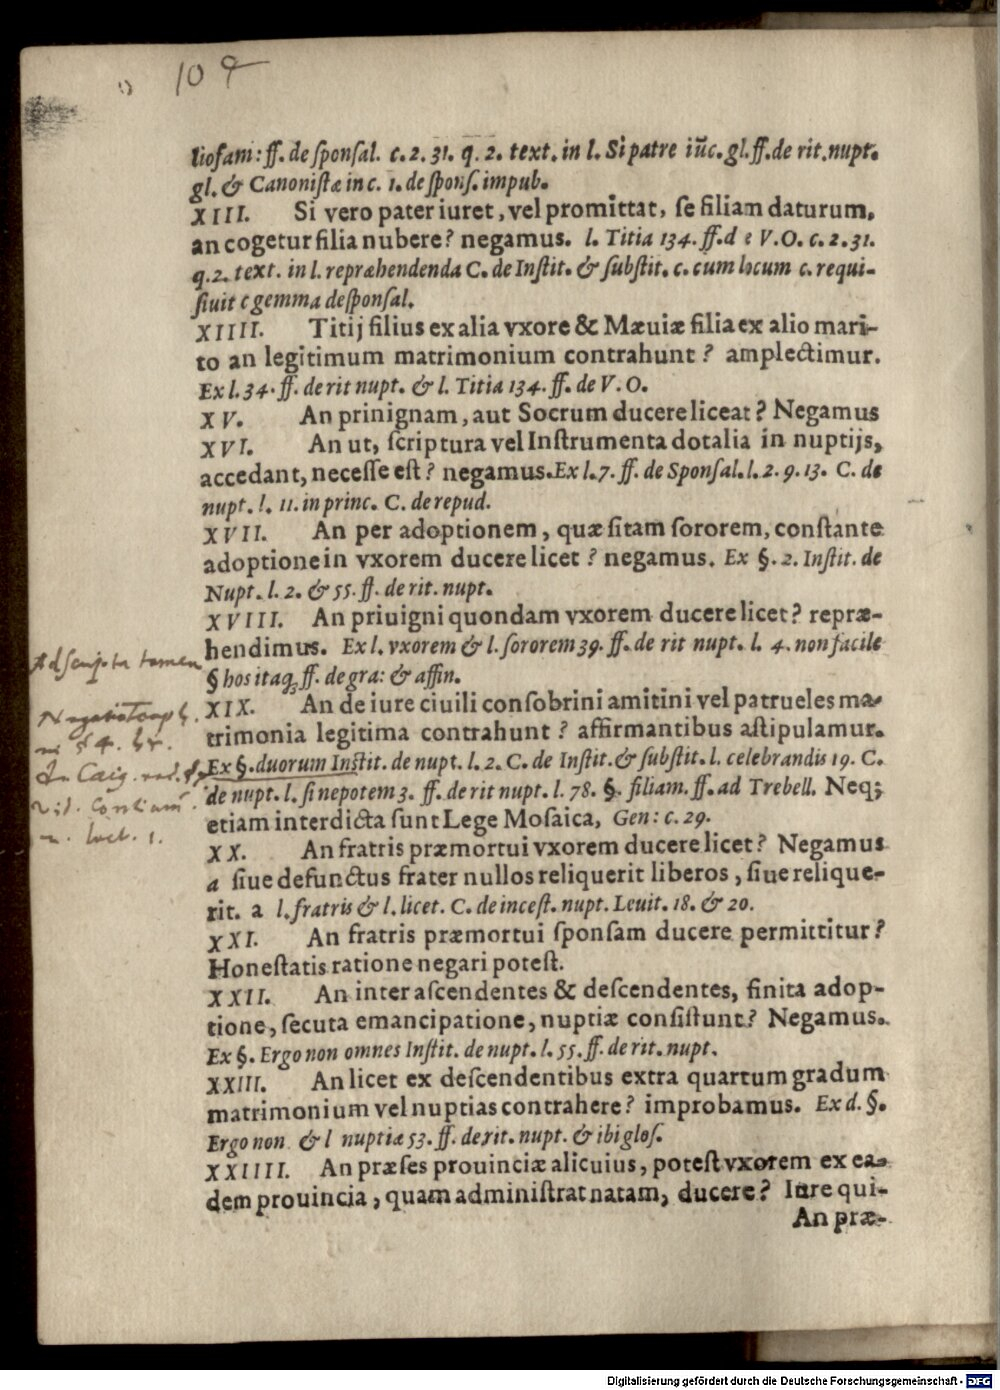 109
liosam: ff. de sponsal. c. 2. 31. q. 2. text. in l. Si patre iũc. gl. ff. de rit. nupt.
gl. & Canonistæ in c. 1. de spons. impub.
XIII. Si vero pater iuret, vel promittat, se filiam daturum,
an cogetur filia nubere? negamus. l. Titia 134. ff. d e V. O. c. 2. 31.
q. 2. text. in l. repræhendenda C. de Instit. & substit. c. cum locum c. requi-
siuit c gemma de sponsal.
XIIII. Titij filius ex alia vxore & Mæuiæ filia ex alio mari-
to an legitimum matrimonium contrahunt? amplectimur.
Ex l. 34. ff. de rit nupt. & l. Titia 134. ff. de V. O.
XV. An prinignam, aut Socrum ducere liceat? Negamus
XVI. An ut, scriptura vel Instrumenta dotalia in nuptijs,
accedant, necesse est? negamus. Ex l. 7. ff. de Sponsal. l. 2. 9. 13. C. de
nupt. l. 11. in princ. C. de repud.
XVII. An per adoptionem, quæsitam sororem, constante
adoptione in vxorem ducere licet? negamus. Ex §. 2. Instit. de
Nupt. l. 2. & 55. ff. de rit. nupt.
XVIII. An priuigni quondam vxorem ducere licet? repræ-
hendimus. Ex l. vxorem & l. sororem 39. ff. de rit nupt. l. 4. non facile
§ hos itaq; ff. de gra: & affin.
XIX. An de iure ciuili consobrini amitini vel patrueles ma-
trimonia legitima contrahunt? affirmantibus astipulamur.
Ex §. duorum Instit. de nupt. l. 2. C. de Instit. & substit. l. celebrandis 19. C.
de nupt. l. si nepotem 3. ff. de rit nupt. l. 78. §. filiam. ff. ad Trebell. Neq;
etiam interdicta sunt Lege Mosaica, Gen: c. 29.
XX. An fratris præmortui vxorem ducere licet? Negamus
a siue defunctus frater nullos reliquerit liberos, siue relique-
rit. a l. fratris & l. licet. C. de incest. nupt. Leuit. 18. & 20.
XXI. An fratris præmortui sponsam ducere permittitur?
Honestatis ratione negari potest.
XXII. An inter ascendentes & descendentes, finita adop-
tione, secuta emancipatione, nuptiæ consistunt? Negamus.
Ex §. Ergo non omnes Instit. de nupt. l. 55. ff. de rit. nupt.
XXIII. An licet ex descendentibus extra quartum gradum
matrimonium vel nuptias contrahere? improbamus. Ex d. §.
Ergo non & l nuptiæ 53. ff. de rit. nupt. & ibi glos.
XXIIII. An præses prouinciæ alicuius, potest vxorem ex ea-
dem prouincia, quam administrat natam, ducere? Iure qui-
An præ-
Adscripta tamen
Digitalisierung gefördert durch die Deutsche Forschungsgemeinschaft - DFG